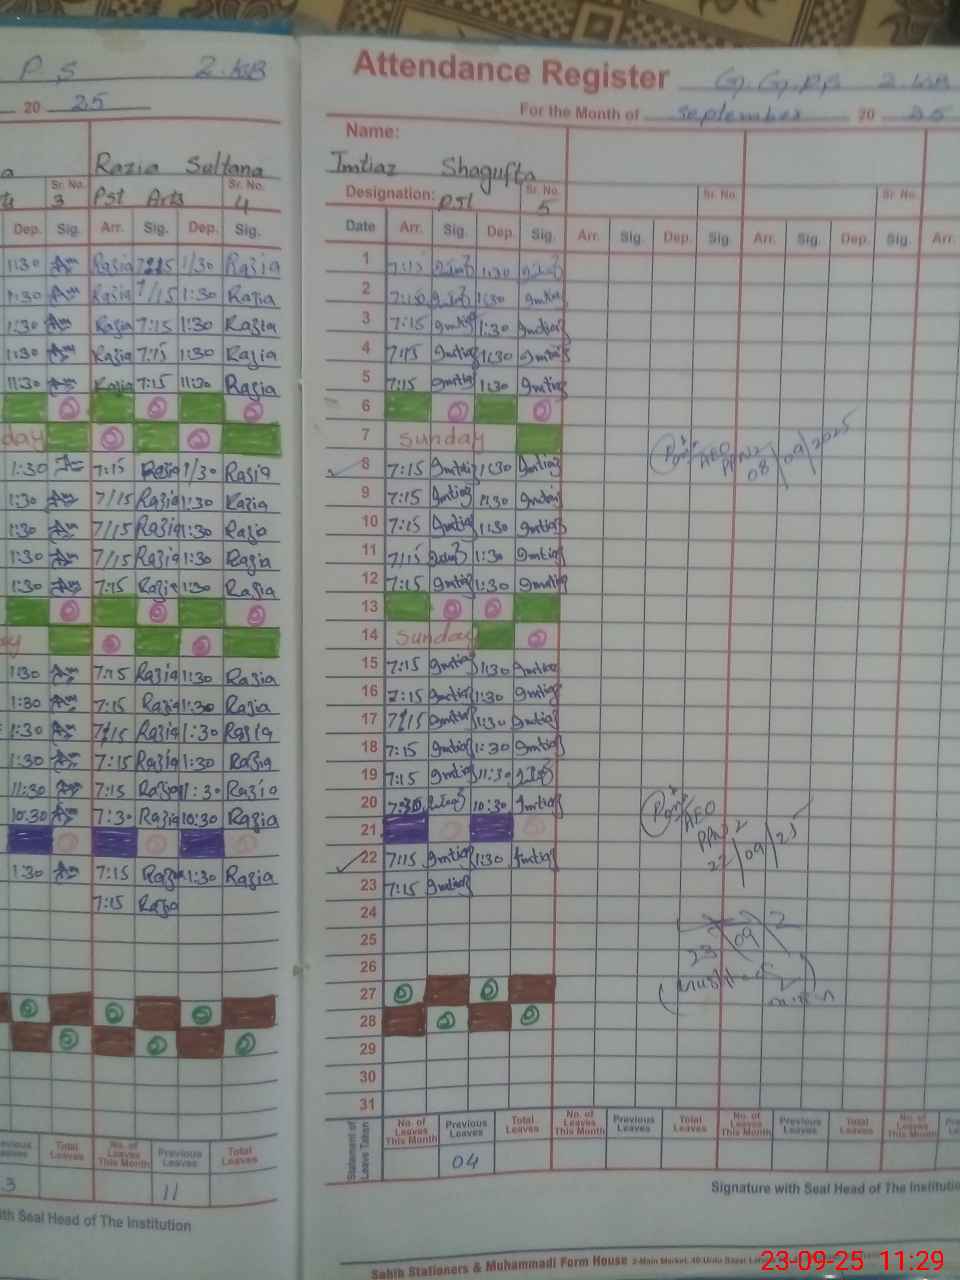 P S 2.KB
20 25
Razia Sultana
Sr. No. 3 Pst Arts Sr. No. 4
Dep. Sig. Arr. Sig. Dep. Sig.
1:30 Razia 7:15 1/30 Razia
1:30 Razia 7/15 1:30 Razia
1:30 Razia 7:15 1:30 Razia
1:30 Razia 7:15 1:30 Razia
11:30 Razia 7:15 11:30 Razia
day
1:30 7:15 Razia 1/30 Razia
1:30 7/15 Razia 1:30 Razia
1:30 7/15 Razia 1:30 Razia
1:30 7/15 Razia 1:30 Razia
1:30 7:15 Razia 1:30 Razia
1:30 7:15 Razia 1:30 Razia
1:30 7:15 Razia 1:30 Razia
1:30 7/15 Razia 1:30 Razia
1:30 7:15 Razia 1:30 Razia
11:30 7:15 Razia 1:30 Razia
10:30 7:30 Razia 10:30 Razia
1:30 7:15 Razia 1:30 Razia
7:15
Total Leaves No. of Leaves This Month Previous Leaves Total Leaves
11
Seal Head of The Institution
Attendance Register G.G.P.S 2.KB
For the Month of September 20 25
Name:
Imtiaz Shagufta
Designation: PST Sr. No. 5 Sr. No. Sr. No.
Date Arr. Sig. Dep. Sig. Arr. Sig. Dep. Sig. Arr. Sig. Dep. Sig. Arr.
1 7:15 1:30
2 7:15 1:30 Imtiaz
3 7:15 Imtiaz 1:30 Imtiaz
4 7:15 Imtiaz 1:30 Imtiaz
5 7:15 Imtiaz 1:30 Imtiaz
6
7 Sunday
8 7:15 Imtiaz 1:30 Imtiaz
AEO
08/09/2025
9 7:15 Imtiaz 1:30 Imtiaz
10 7:15 Imtiaz 1:30 Imtiaz
11 7/15 1:30 Imtiaz
12 7:15 Imtiaz 1:30 Imtiaz
13
14 Sunday
15 7:15 Imtiaz 1:30 Imtiaz
16 7:15 Imtiaz 1:30 Imtiaz
17 7/15 Imtiaz 1:30 Imtiaz
18 7:15 Imtiaz 1:30 Imtiaz
19 7:15 Imtiaz 11:30
20 7:30 10:30 Imtiaz
AEO
21
22 7:15 Imtiaz 1:30 Imtiaz
22/09/25
23 7:15 Imtiaz
24
25
23/09/2
26
27
28
29
30
31
Statement of Leave Taken No. of Leaves This Month Previous Leaves Total Leaves No. of Leaves This Month Previous Leaves Total Leaves No. of Leaves This Month Previous Leaves Total Leaves No. of Leaves This Month
04
Signature with Seal Head of The Institution
Sahib Stationers & Muhammadi Form House 2-Main Market, 40-Urdu Bazar
23-09-25 11:29